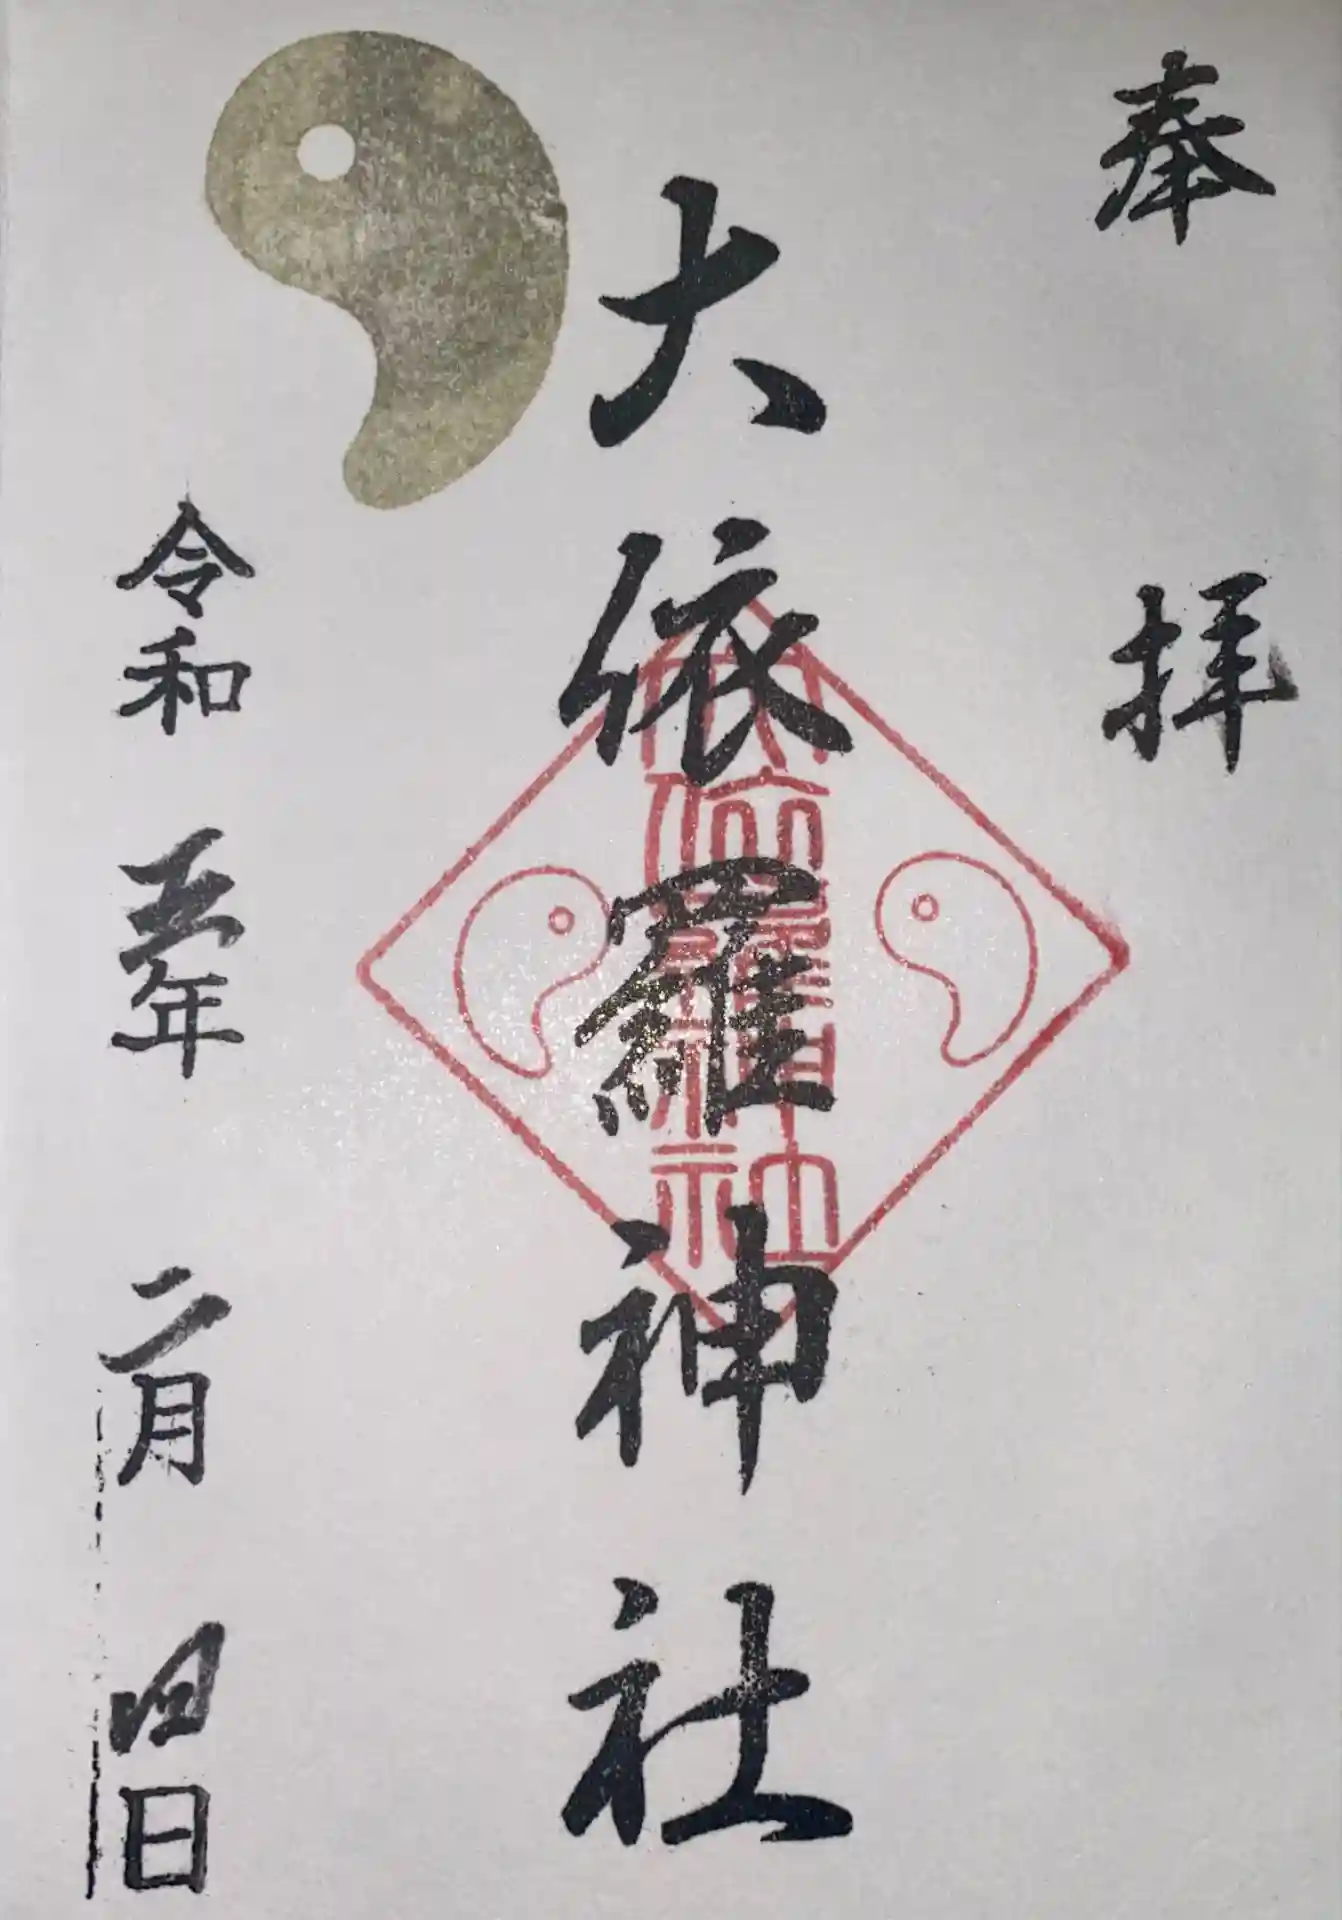 奉拝
大依羅神社
大依羅神社
令和五年二月四日